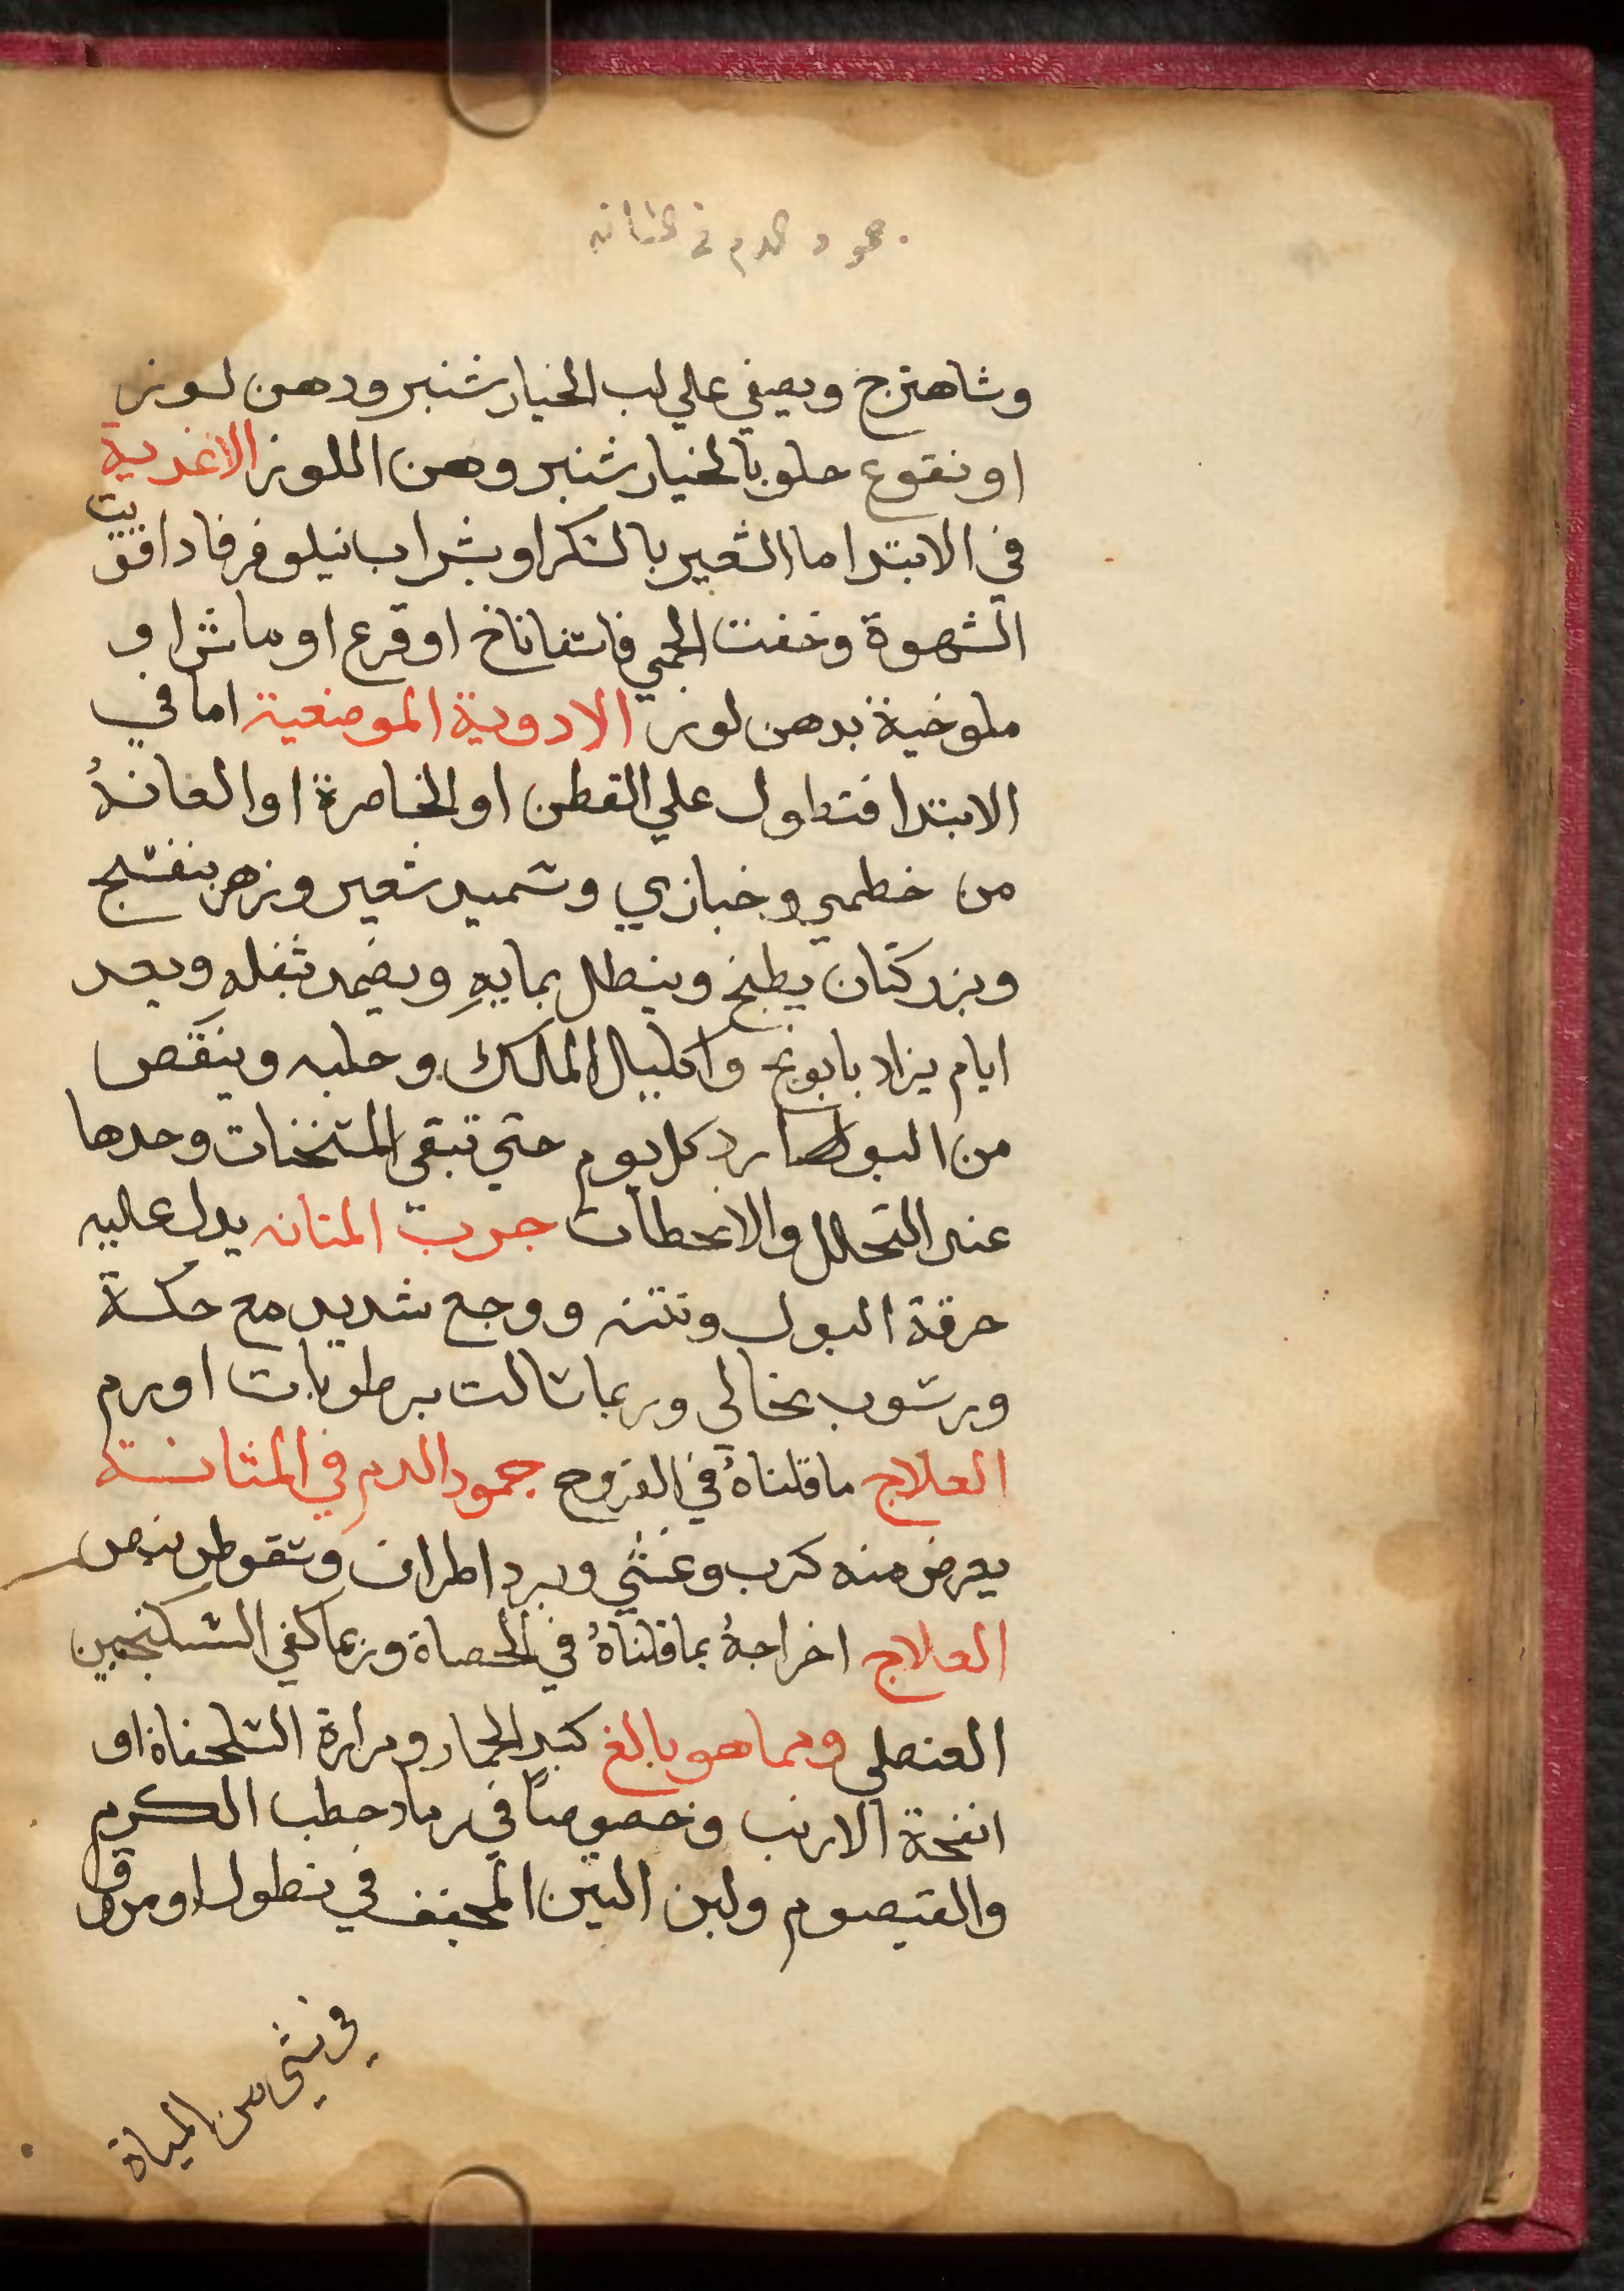 جمود الدم في المثانه
وشاهترج ويصفي علي لب الخيارشنبر ودهن لوز
او نقوع حلو بالخيارشنبر وهن اللوز الاغدية
في الابتدا ما الشعير بالسكر او بشراب نيلوفر فادا قويت
الشهوة وخفت الحمي فاسفاناخ او قرع او ماش او
ملوخية بدهن لوز الادوية الموضعية اما في
الابتدا فنطول علي القطن او الخاصرة او العانة
من خطمي وخبازي وسميد شعير وزهر بنفسج
وبزر كتان يطبخ وينطل بمايهِ ويضمد بثفله وبعد
ايام يزاد بابونج واكليل الملك وحلبه وينقص
من البوارد كل يوم حتي تبقي المسخنات وحدها
عند التحلل والانحطاط جرب المثانه يدل عليه
حرقة البول ونتنه ووجع شديد مع حكة
ورسوب نخالي وربما سالت برطوبات او رم
العلاج ما قلناهُ في القروح جمود الدم في المثانة
يعرض منه كرب وغشي وبرد اطراف وسقوط نبض
العلاج اخراجهُ بما قلناهُ في الحصاة وربما كفي السكنجبين
العنصلي ومما هو بالغ كبد الحمار ومرارة السلحفاة او
انفحة الارنب وخصوصاً في رماد حطب الكرم
والقيصوم ولبن التين المجفف في نطول او مرق
في شي من المياة